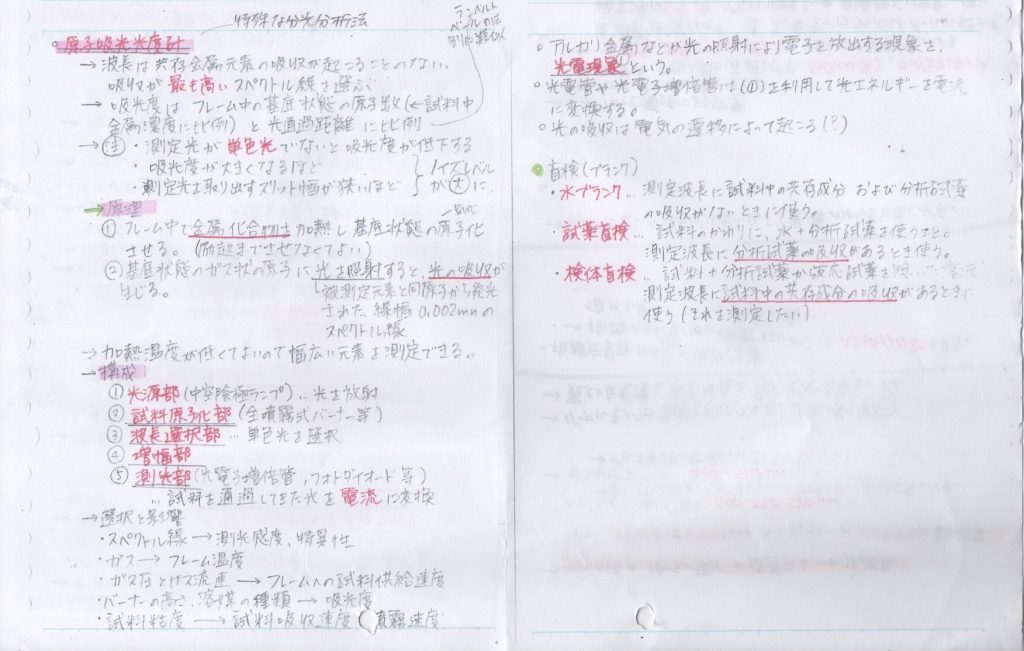 特殊な分光分析法
ランベルト
ベールの法
則に類似
○原子吸光光度計
→波長は共存金属元素の吸収が起こることのない、
吸収が最も高いスペクトル線を選ぶ
→吸光度はフレーム中の基底状態の原子数(←試料中
金属濃度に比例)と光通過距離に比例
→注・測定光が単色光でないと吸光度が低下する
・吸光度が大きくなるほど
・測定光を取り出すスリット幅が狭いほど
ノイズレベル
が大に
→原理
①フレーム中で金属化合物を加熱し基底状態の原子化
させる。(励起までさせなくてよい)
②基底状態のガス状の原子に光を照射すると、光の吸収が
生じる。
被測定元素と同原子から発光
された線幅0.002nmの
スペクトル線
→加熱温度が低くてよいので幅広い元素を測定できる。
→構成
①光源部(中空陰極ランプ)…光を放射
②試料原子化部(全噴霧式バーナー等)
③波長選択部…単色光を選択
④増幅部
⑤測光部(光電子増倍管,フォトダイオード等)
…試料を通過してきた光を電流に変換
→選択と影響
・スペクトル線→測光感度、特異性
・ガス→フレーム温度
・ガス圧とガス流速→フレームへの試料供給速度
・バーナーの高さ、溶媒の種類→吸光度
・試料粘度→試料吸収速度 噴霧速度
○アルカリ金属などが光の照射により電子を放出する現象を、
光電現象という。
○光電管や光電子増倍管は(①)を利用して光エネルギーを電流
に変換する。
○光の吸収は電気の遷移によって起こる(?)
○盲検(ブランク)
・水ブランク…測定波長に試料中の共存成分および分析試薬
の吸収がないときに使う。
・試薬盲検…試料のかわりに、水+分析試薬を使うこと。
測定波長に分析試薬の吸収があるとき使う。
・検体盲検…試料+分析試薬から反応試薬を除いた
測定波長に試料中の共存成分の吸収があるときに
使う(それを測定したい)